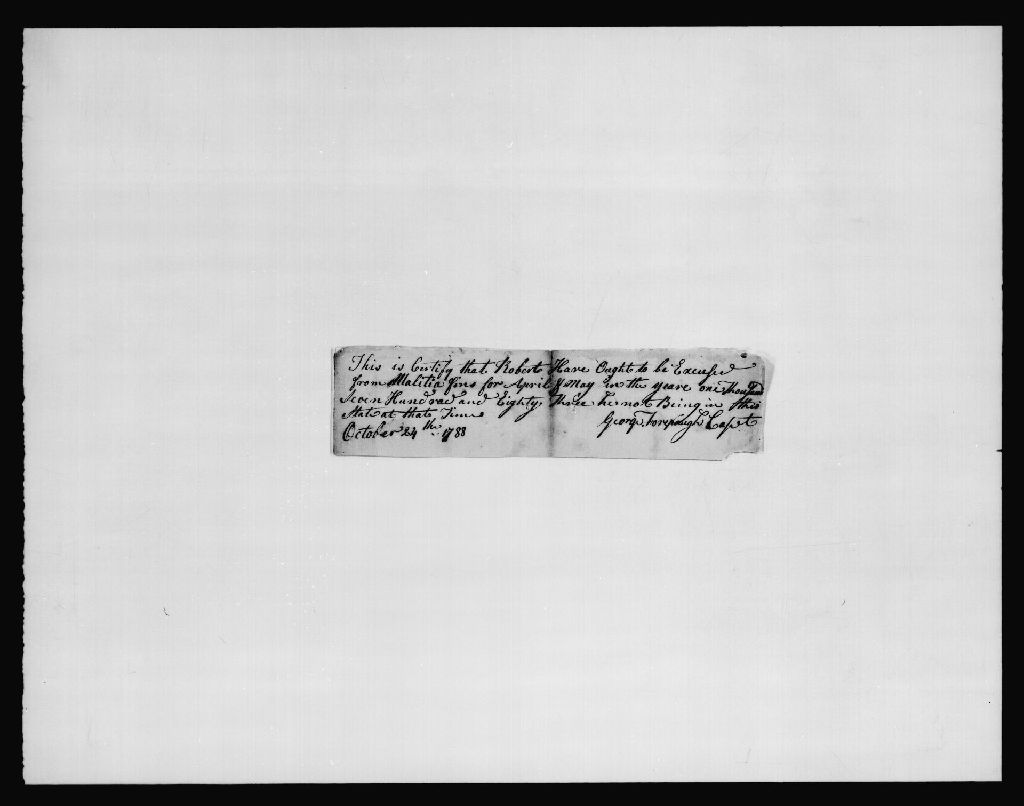 This is Certify that Robert Hare Ought to be Excused
from Malitia fins for April & May in the yeare one thousand
Seven Hundrad and Eighty three he not Being in this
State at that Time
George Forepaugh Capt
October 24th 1788